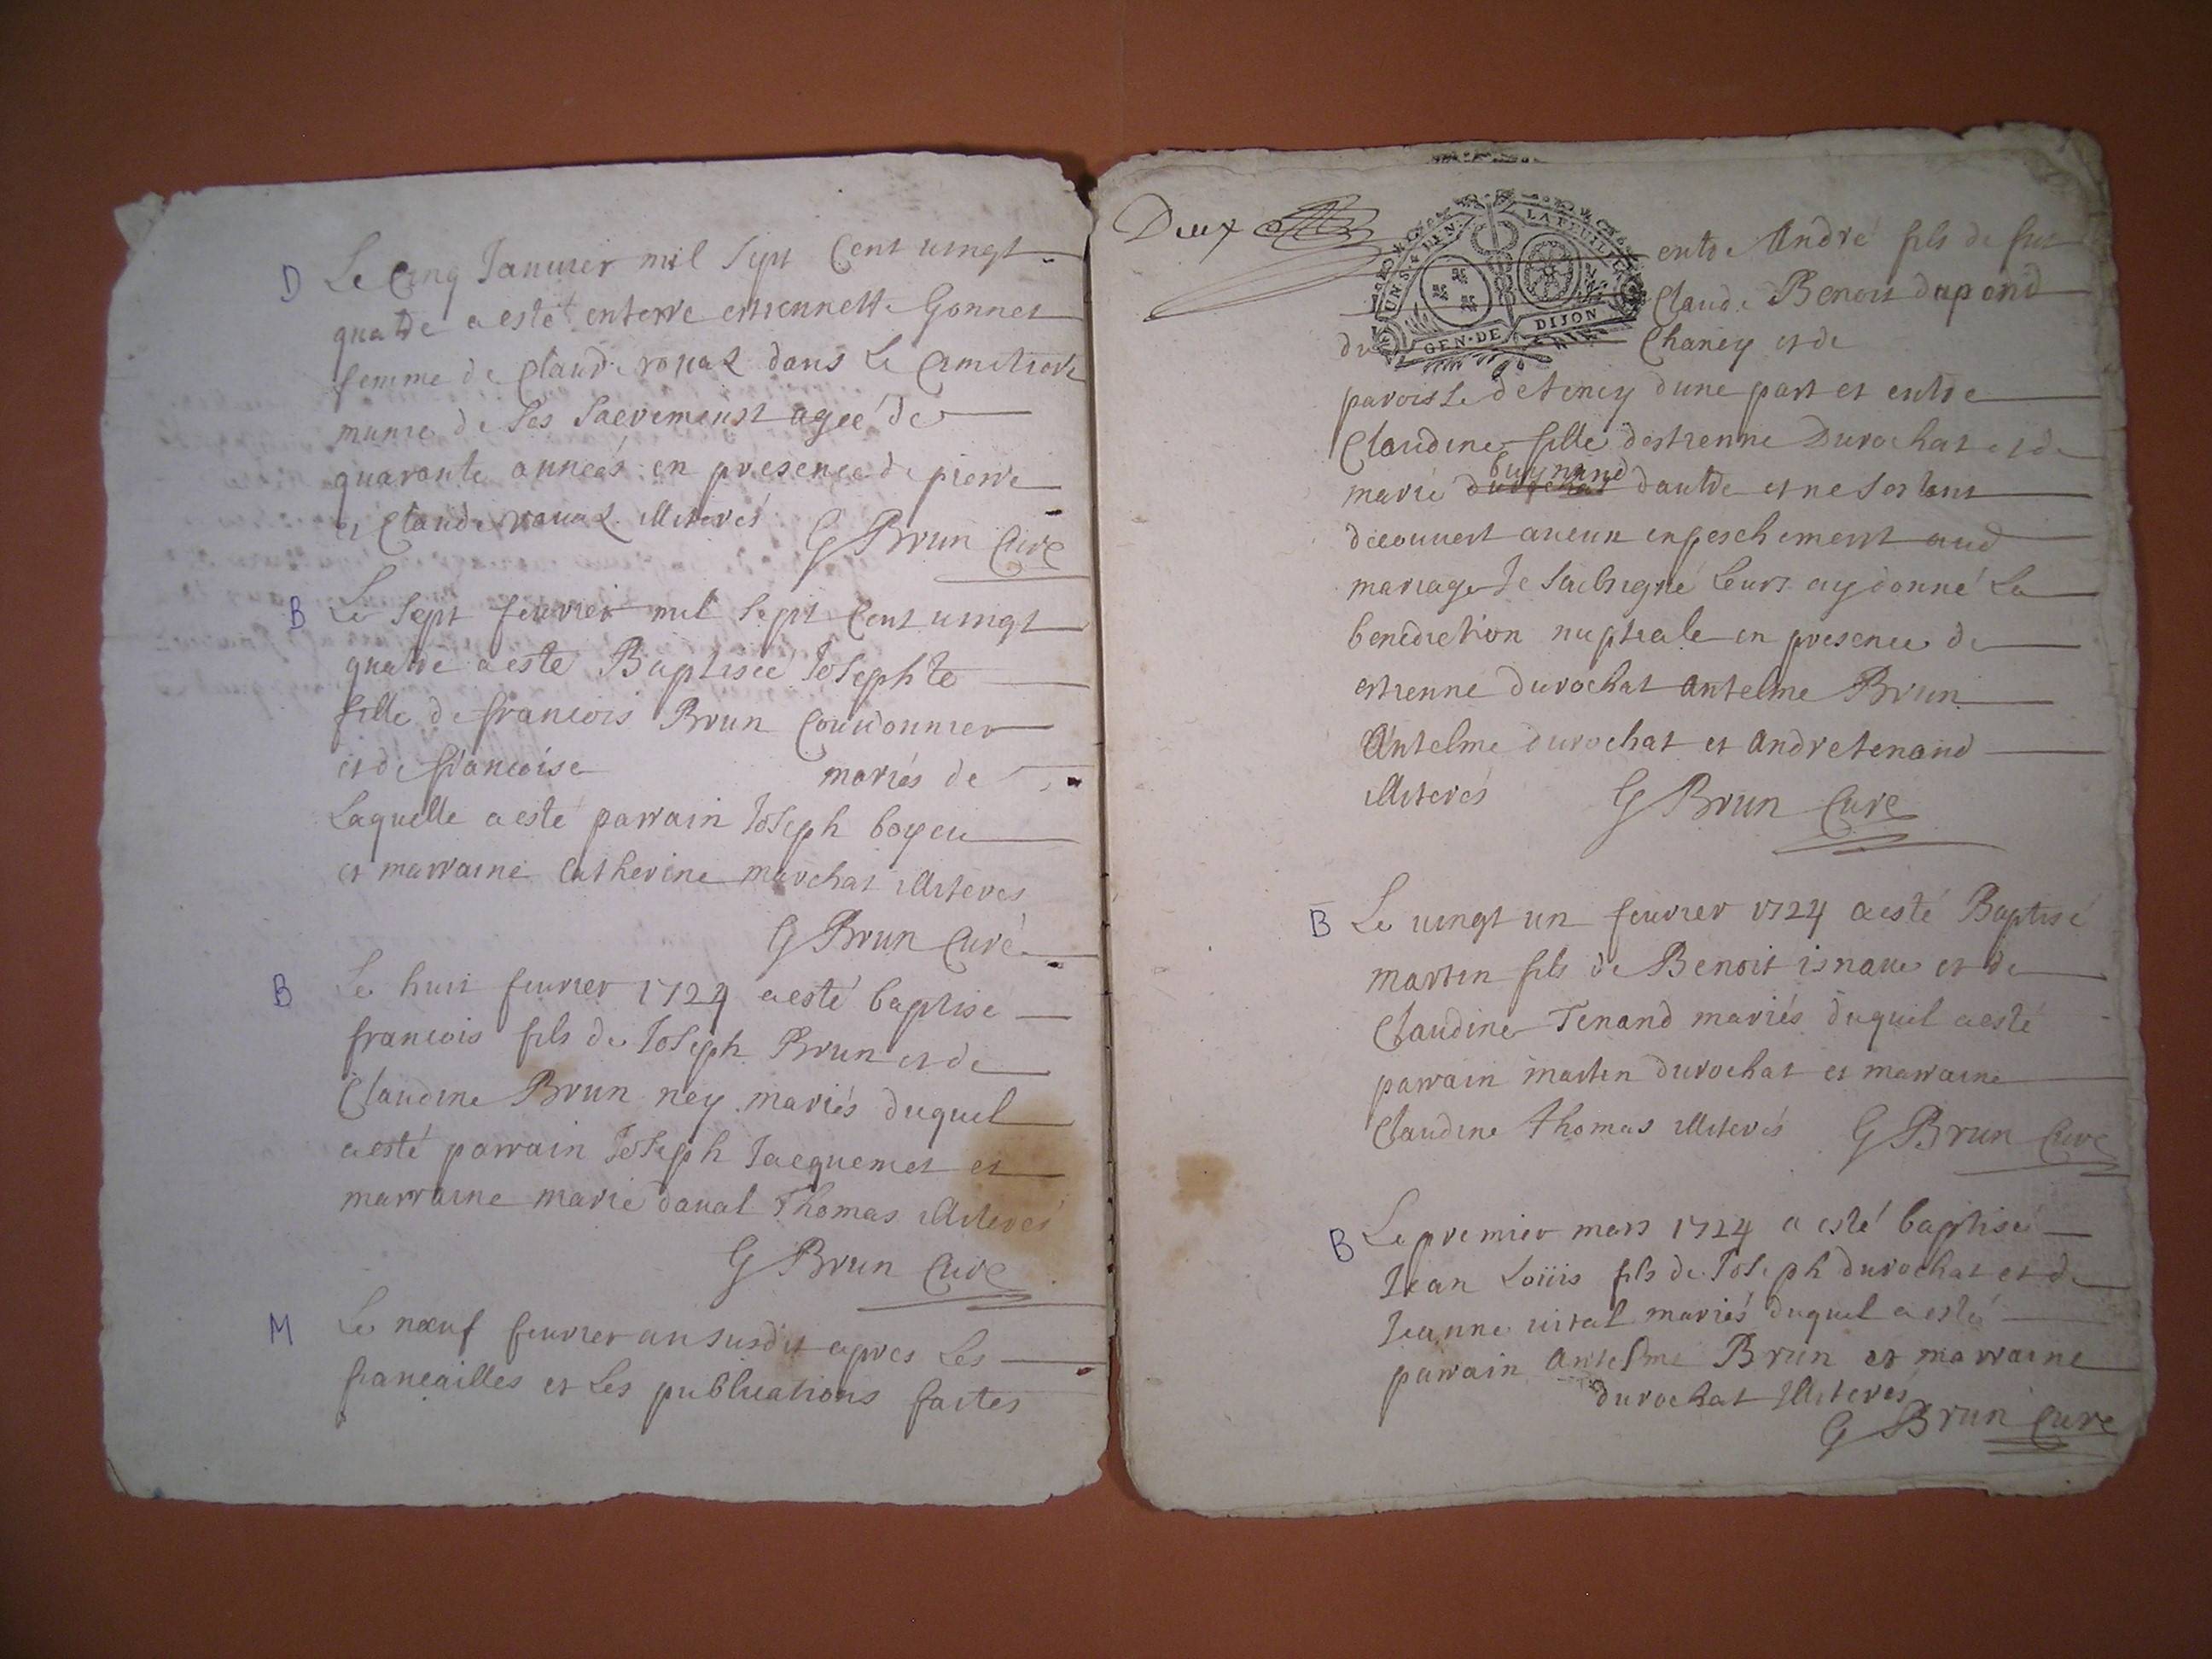 D Le Cinq Januier mil sept Cent uingt
quatre a esté enterre estiennette Gonnet
femme de Claude rouat dans Le Cimetiere
munie de Ses Sacrements agée de
quarante années en presence de pierre
et Claude rouat illiterés G Brun Curé
B Le Sept feurier mil Sept Cent uingt
quatre a esté Baptisée Josephte
fille de francois Brun Courdonnier
et de francoise mariés de
Laquelle a esté parrain Joseph boyeu
et marraine Catherine marchat illiteres
G Brun Curé
B Le huit feurier 1724 a esté baptisé
francois fils de Joseph Brun et de
Claudine Brun ney mariés duquel
a esté parrain Joseph Jacquemet et
marraine marie daual Thomas illiterés
G Brun Curé
M Le nœuf feurier an susdit apres Les
fiancailles et Les publications faites
Deux
GEN·DE DIJON
entre André fils de feu
Claude Benoit dupond
du Chaney et de
paroisse de tency dune part et entre
Claudine fille destienne Durochat et de
marie durochat buynand dautre et ne sestant
découuert aucun enpeschement aud
mariage Je Soubsigné Leurs ay donné La
benediction nuptiale en presence de
estienne durochat antelme Brun
Antelme durochat et andre tenand
illiterés G Brun Curé
B Le uingt un feurier 1724 a esté Baptisé
martin fils de Benoit isnaue et de
Claudine Tenand mariés duquel a esté
parrain martin durochat et marraine
Claudine thomas illiterés G Brun Curé
B Le premier mars 1724 a esté baptisé
Jean Loüis fils de Joseph durochat et de
Jeanne uital mariés duquel a esté
parrain antelme Brun et marraine
durochat illiterés
G Brun Curé